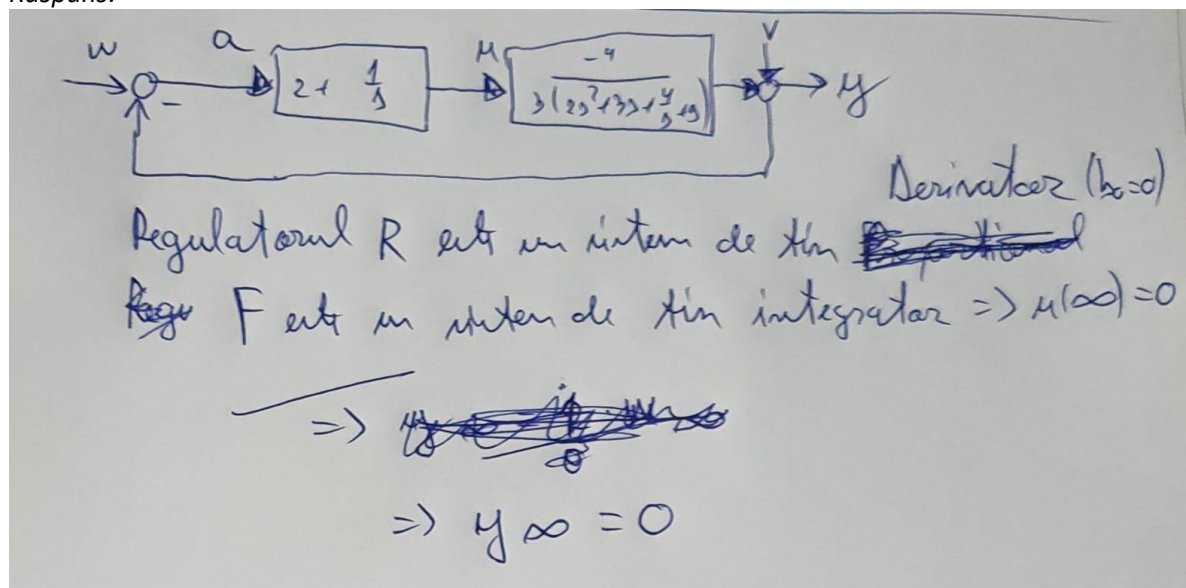 Răspuns:
w a 2 + 1/s u -4 / s(2s²+3s+4/s+9) v y
-
Derivator (b₀=0)
Regulatorul R este un sistem de tip
F este un sistem de tip integrator => u(∞)=0
=>
=> y∞ = 0